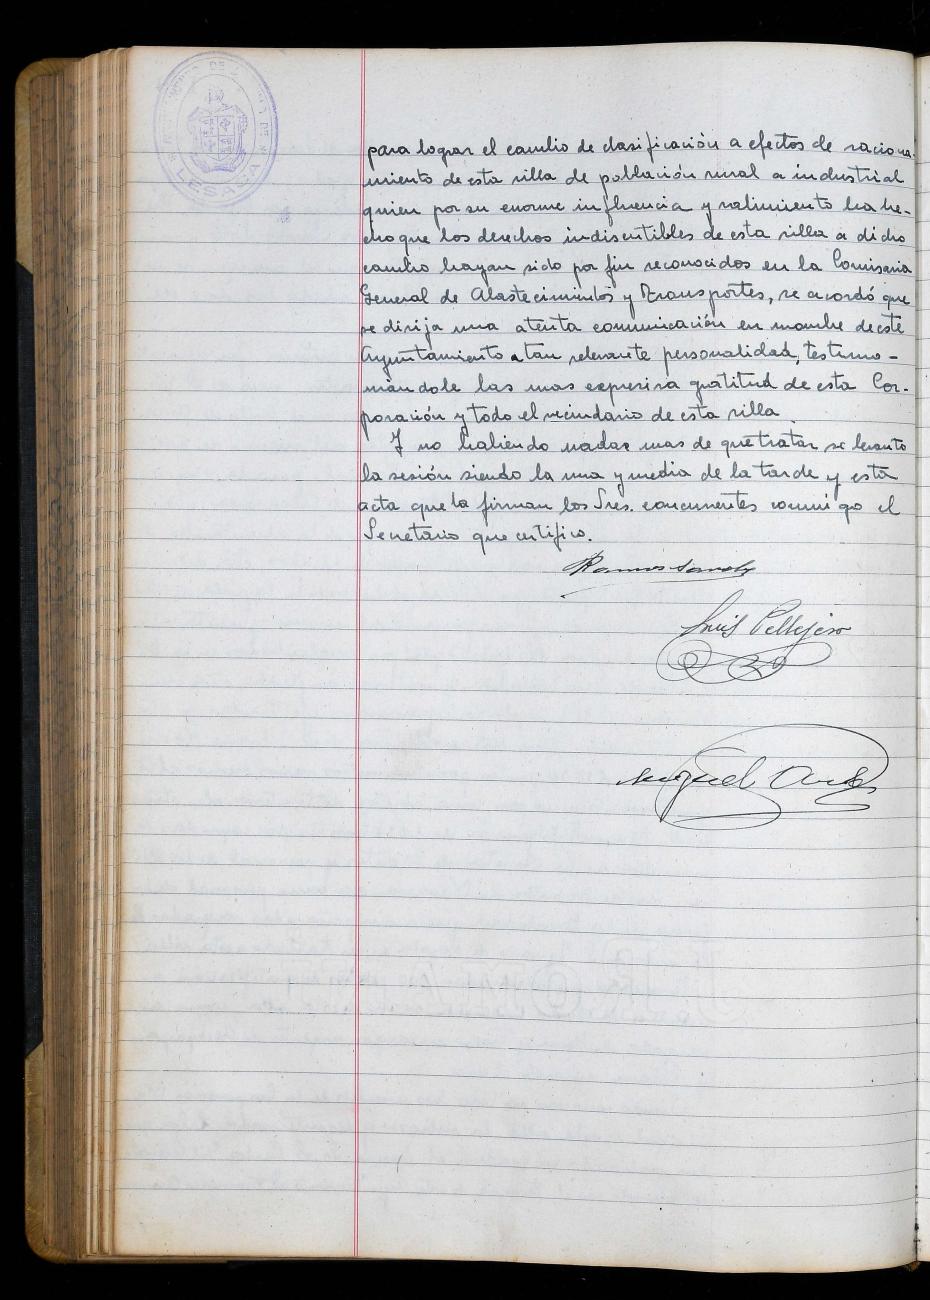 LESACA
para lograr el cambio de clasificación a efectos de raciona-
miento de esta villa de población rural a industrial
quien por su enorme influencia y valimiento ha he-
cho que los derechos indiscutibles de esta villa a dicho
cambio hayan sido por fin reconocidos en la Comisaria
General de Abastecimientos y Transportes, se acordó que
se dirija una atenta comunicación en nombre de este
Ayuntamiento a tan relevante personalidad, testimo-
niandole las mas expresiva gratitud de esta Cor-
poración y todo el vecindario de esta villa.
Y no habiendo nadas mas de que tratar se levanto
la sesión siendo la una y media de la tarde y esta
acta que la firman los Sres. concurrentes conmigo el
Secretario que certifico.
Ramos
Luis Pellejero
Miguel